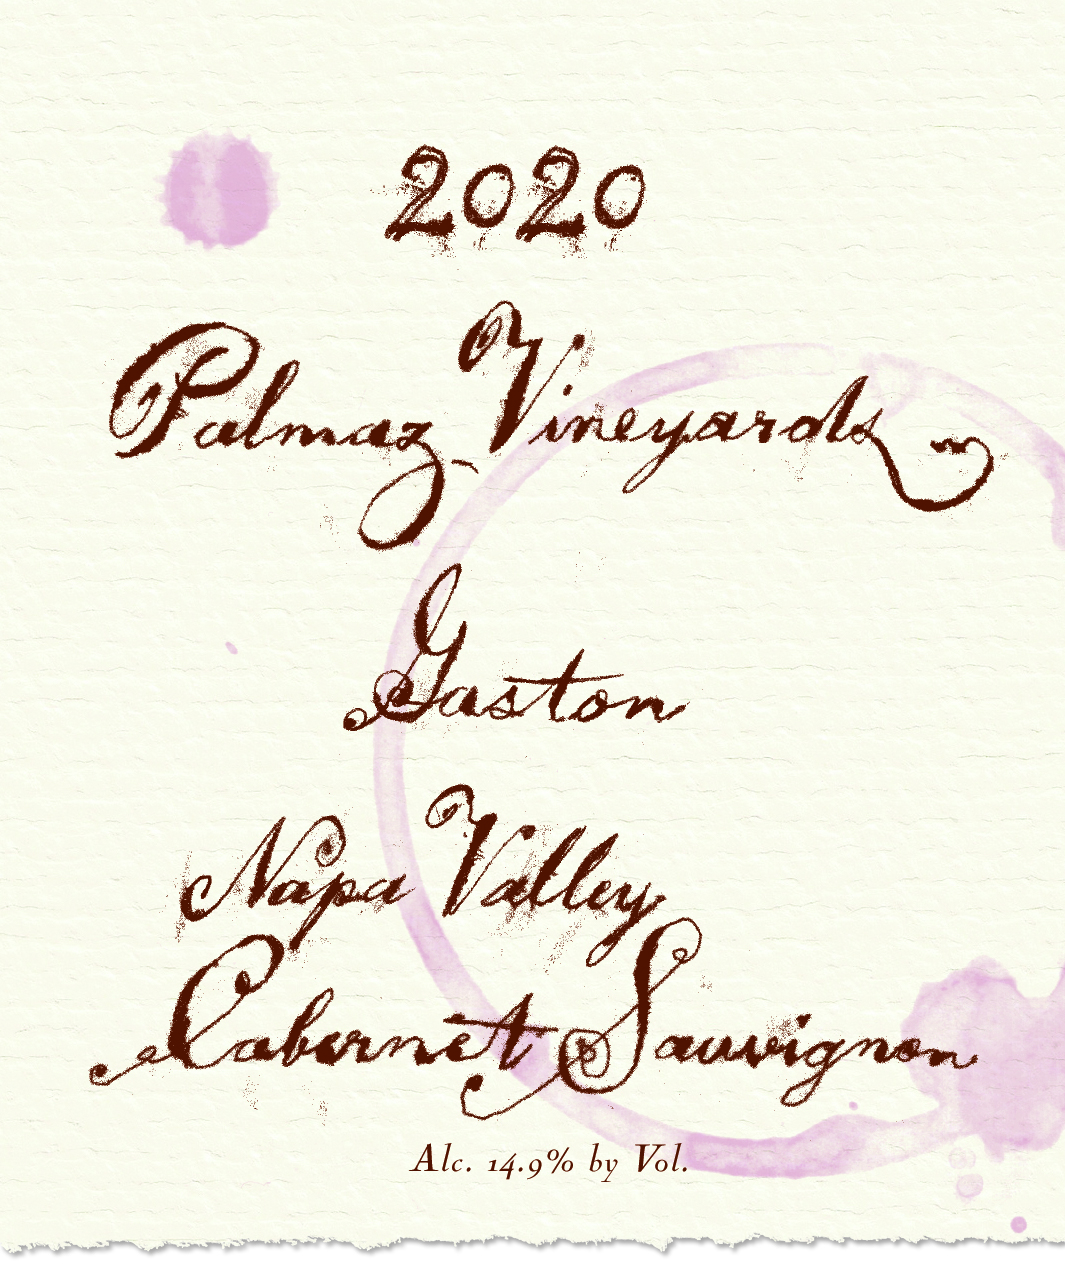 2020
Palmaz Vineyards
Gaston
Napa Valley
Cabernet Sauvignon
Alc. 14.9% by Vol.